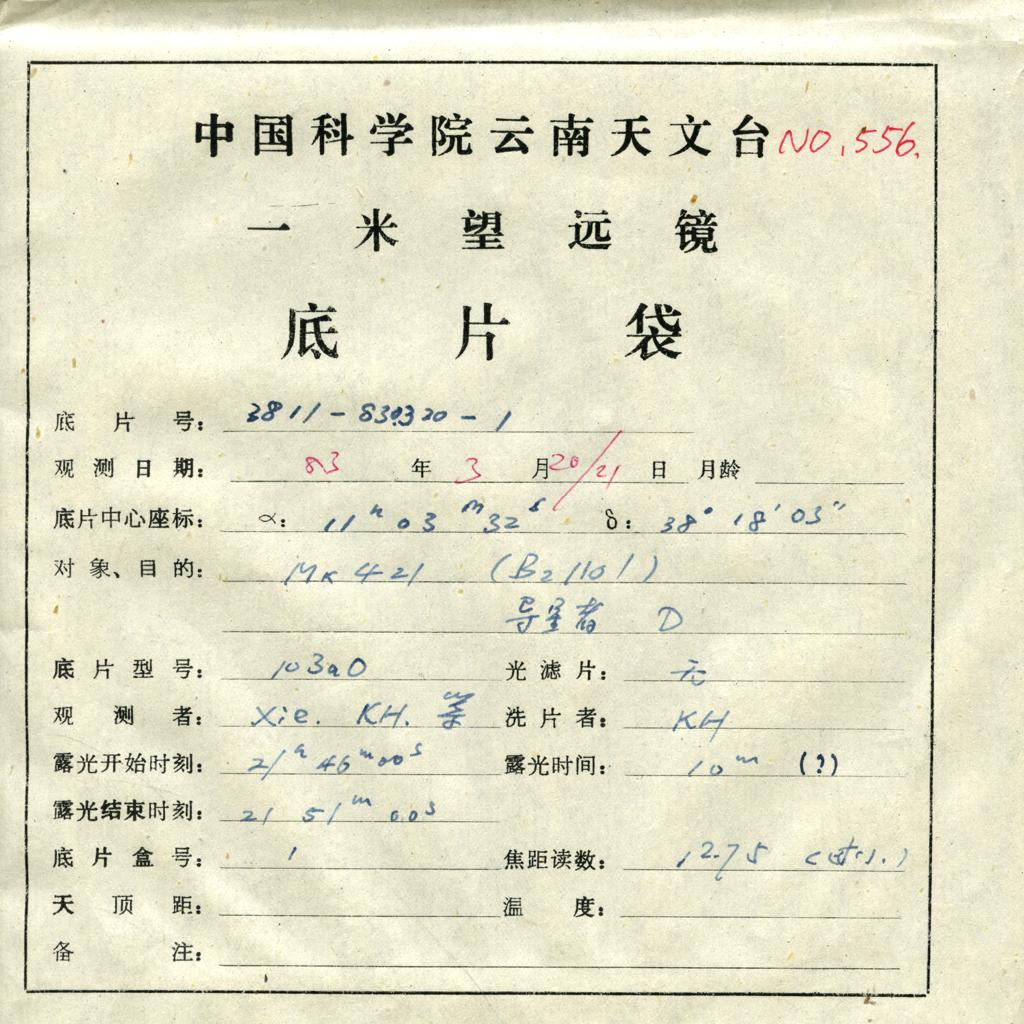 中国科学院云南天文台 NO.556.
一米望远镜
底片袋
底片号: 3811-830320-1
观测日期: 83年3月20/21日 月龄
底片中心座标: α: 11h03m32s δ: 38°18′03″
对象、目的: MK421 (B21101)
导星者 D
底片型号: 103aO 光滤片: 无
观测者: Xie. KH. 洗片者: KH
露光开始时刻: 21h46m00s 露光时间: 10m (?)
露光结束时刻: 21 51m 00s
底片盒号: 1 焦距读数: 12.75
天顶距: 温度:
备注: